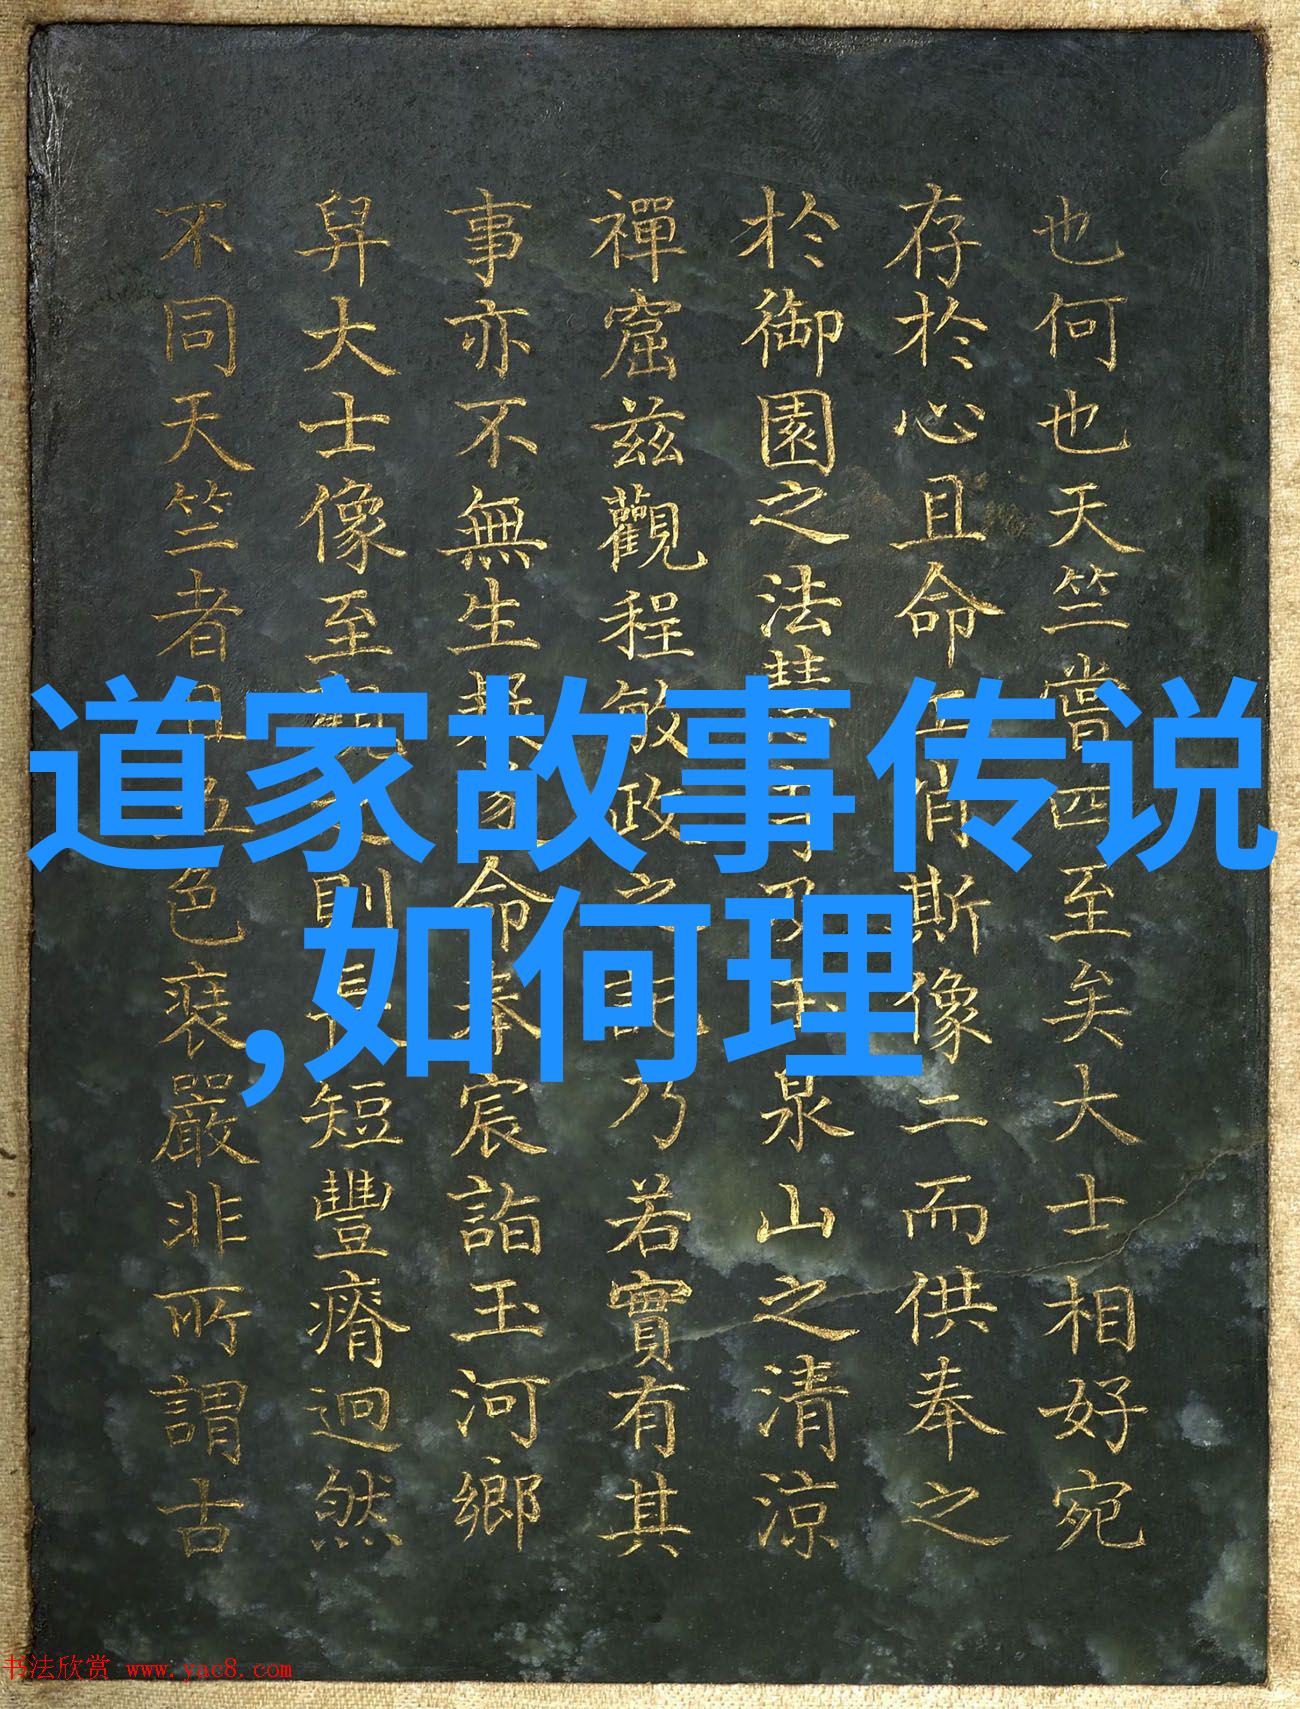 也何也天竺嘗四至矣大士相好宛
存於心且命工肖斯像二而供奉之
於御園之法慧寺乃玉泉山之清涼
禪窟茲觀程敏政之記乃若實有其
事亦不無生命奉宸詣玉河鄉
舁大士像至則長短豐瘠迥然
不同天竺者且五色嚴非所謂古
道家故事传说
,如何理
书法欣赏 www.yac8.com